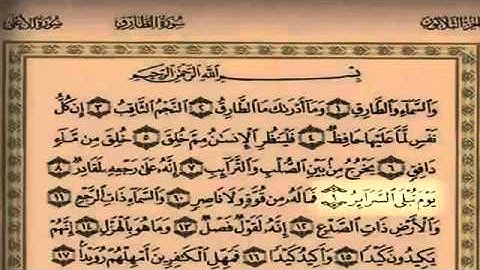 سورة الأعلى سورة الطارق الجزء الثلاثون
بسم الله الرحمن الرحيم
والسماء والطارق ١ وما أدرىك ما الطارق ٢ النجم الثاقب ٣ إن كل
نفس لما عليها حافظ ٤ فلينظر الإنسن مم خلق ٥ خلق من ماء
دافق ٦ يخرج من بين الصلب والترائب ٧ إنه على رجعه لقادر ٨
يوم تبلى السرائر ٩ فما له من قوة ولا ناصر ١٠ والسماء ذات الرجع ١١
والأرض ذات الصدع ١٢ إنه لقول فصل ١٣ وما هو بالهزل ١٤ إنهم
يكيدون كيدا ١٥ وأكيد كيدا ١٦ فمهل الكفرين أمهلهم رويدا ١٧